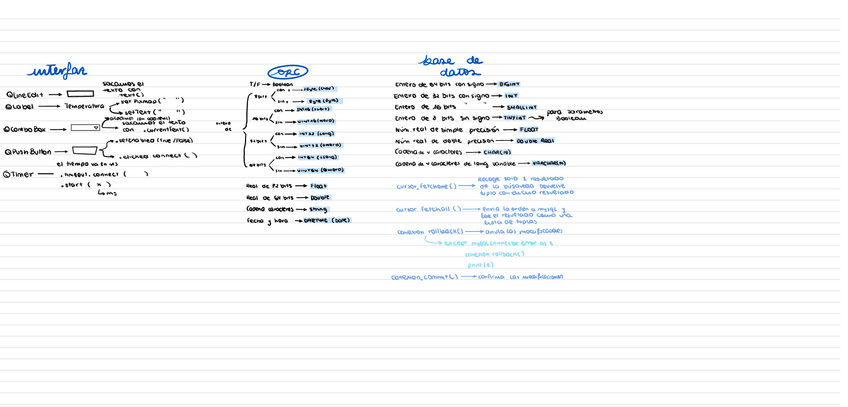 interfaz
QLineEdit → sacamos el texto con text()
QLabel → Temperatura
setNum("   ")
setText("   ")
QComboBox → sacamos el texto con .currentText()
QPushButton
.setEnabled (True/False)
.clicked.connect( )
el tiempo va en ms
QTimer → .timeout.connect (   )
.start ( x )
ms
OPC
T/F → boolean
entero de
8 bits
con →
sin → Byte (Byte)
16 bits
con → INT16 (Int16)
sin → UINT16 (UInt16)
32 bits
con → INT32 (Long)
sin → UINT32 (UInt32)
64 bits
con → INT64 (Int64)
sin → UINT64 (UInt64)
Real de 32 bits → Float
Real de 64 bits → Double
Cadena caracteres → String
Fecha y hora → DateTime (Date)
base de datos
Entero de 64 bits con signo → BIGINT
Entero de 32 bits con signo → INT
Entero de 16 bits " " → SMALLINT
Entero de 8 bits sin signo → TINYINT → para parametros boolean
Núm. real de simple precisión → FLOAT
Núm. real de doble precision → DOUBLE REAL
Cadena de n caracteres → CHAR(N)
Cadena de n caracteres de long variable → VARCHAR(N)
cursor.fetchone( ) → Recoge solo 1 resultado de la búsqueda devuelve tupla con dicho resultado
cursor.fetchall ( ) → Envía la orden a mysql y lee el resultado como una lista de tuplas
conexion.rollback( ) → anula las modificaciones
except mysql.connector.Error as e
conexion.rollback( )
print(e)
conexion.commit( ) → confirma las modificaciones